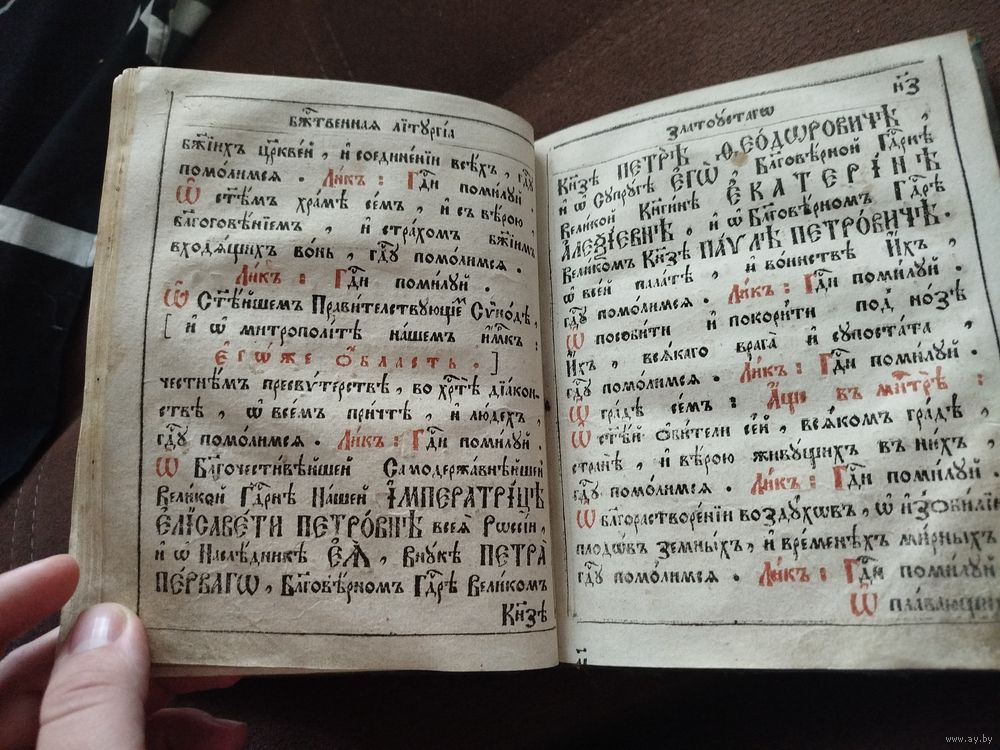 Бж҃твенная лїтꙋргі́а
бж҃їихъ цр҃кве́й , и҆ соедине́нїи всѣ́хъ , гдⷭ҇ꙋ
помо́лимсѧ . Ли́къ : Гдⷭ҇и поми́лꙋй .
Ѿ ст҃ѣмъ хра́мѣ се́мъ , и҆ съ вѣ́рою ,
бл҃гоговѣ́нїемъ , и҆ стра́хомъ бж҃їимъ
входѧ́щихъ во́нь , гдⷭ҇ꙋ помо́лимсѧ .
Ли́къ : Гдⷭ҇и поми́лꙋй .
Ѿ Ст҃ѣ́йшемъ Прави́телствꙋющемъ Сѷно́дѣ ,
[ и҆ ѡ҆ митрополі́тѣ на́шемъ и҆м҃къ :
є҆гѡ́же ѻ҆́бласть . ]
честнѣ́мъ пресвѵ́терствѣ , во хрⷭ҇тѣ̀ дїа́кон-
ствѣ , ѡ҆ все́мъ при́чтѣ , и҆ лю́дехъ ,
гдⷭ҇ꙋ помо́лимсѧ . Ли́къ : Гдⷭ҇и поми́лꙋй .
Ѿ Бл҃гочести́вѣйшей Самодержа́внѣйшей
Вели́кой Гдⷭ҇рнѣ На́шей І҆МПЕРАТРІ́ЦѢ
Є҆ЛІСАВЕ́ТИ ПЕТРО́ВНѢ всеѧ̀ Рѡссі́и ,
и҆ ѡ҆ Наслѣ́дникѣ Є҆Ѧ̀ , Внꙋ́кѣ ПЕТРА̀
ПЕ́РВАГѠ , Бл҃говѣ́рномъ Гдⷭ҇рѣ Вели́комъ
Кн҃зѣ
Златоꙋ́стагѡ
н҃з
Кн҃зѣ ПЕТРѢ̀ Ѳ҆ЕО́ДѠРОВИЧѢ ,
и҆ ѡ҆ Сꙋпрꙋ́гѣ Є҆ГѠ̀ , Бл҃говѣ́рной Гдⷭ҇рнѣ
Вели́кой Кн҃ги́нѣ Є҆КАТЕРІ́НѢ
А҆ЛЕѮІ́ЕВНѢ . и҆ ѡ҆ Бл҃говѣ́рномъ Гдⷭ҇рѣ
Вели́комъ Кн҃зѣ ПА́ѴЛѢ ПЕТРО́ВИЧѢ .
ѡ҆ все́й пала́тѣ , и҆ во́инствѣ И҆́хъ ,
гдⷭ҇ꙋ помо́лимсѧ . Ли́къ : Гдⷭ҇и поми́лꙋй .
Ѿ пособи́ти и҆ покори́ти под̾ но́зѣ
И҆́хъ , всѧ́каго врага̀ и҆ сꙋпоста́та ,
гдⷭ҇ꙋ помо́лимсѧ . Ли́къ : Гдⷭ҇и поми́лꙋй .
Ѿ гра́дѣ се́мъ : А҆́ще въ мн҃стрѣ̀ :
Ѿ ст҃ѣ́й ѻ҆би́тели се́й , всѧ́комъ гра́дѣ ,
странѣ̀ , и҆ вѣ́рою живꙋ́щихъ въ ни́хъ ,
гдⷭ҇ꙋ помо́лимсѧ . Ли́къ : Гдⷭ҇и поми́лꙋй .
Ѿ бл҃горастворе́нїи воздꙋ́хѡвъ , ѡ҆ и҆зоби́лїи
плодѡ́въ земны́хъ , и҆ вре́менехъ ми́рныхъ
гдⷭ҇ꙋ помо́лимсѧ . Ли́къ : Гдⷭ҇и поми́лꙋй
Ѿ пла́вающихъ
www.ay.by